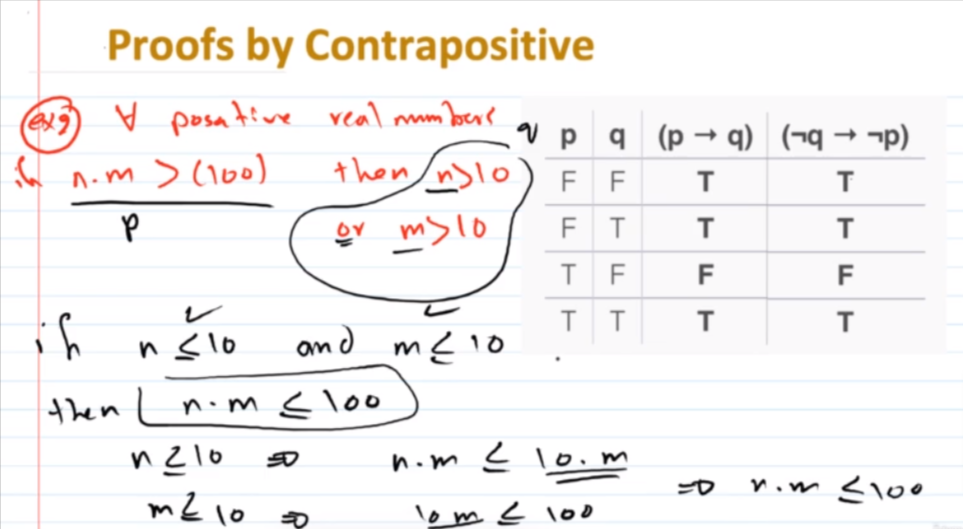 Proofs by Contrapositive
exg ∀ posative real numbers
if n.m > (100) then n>10
p or m>10
q
p q (p → q) (¬q → ¬p)
F F T T
F T T T
T F F F
T T T T
if n ≤ 10 and m ≤ 10
then n.m ≤ 100
n ≤ 10 ⇒ n.m ≤ 10.m
m ≤ 10 ⇒ 10m ≤ 100 ⇒ n.m ≤ 100